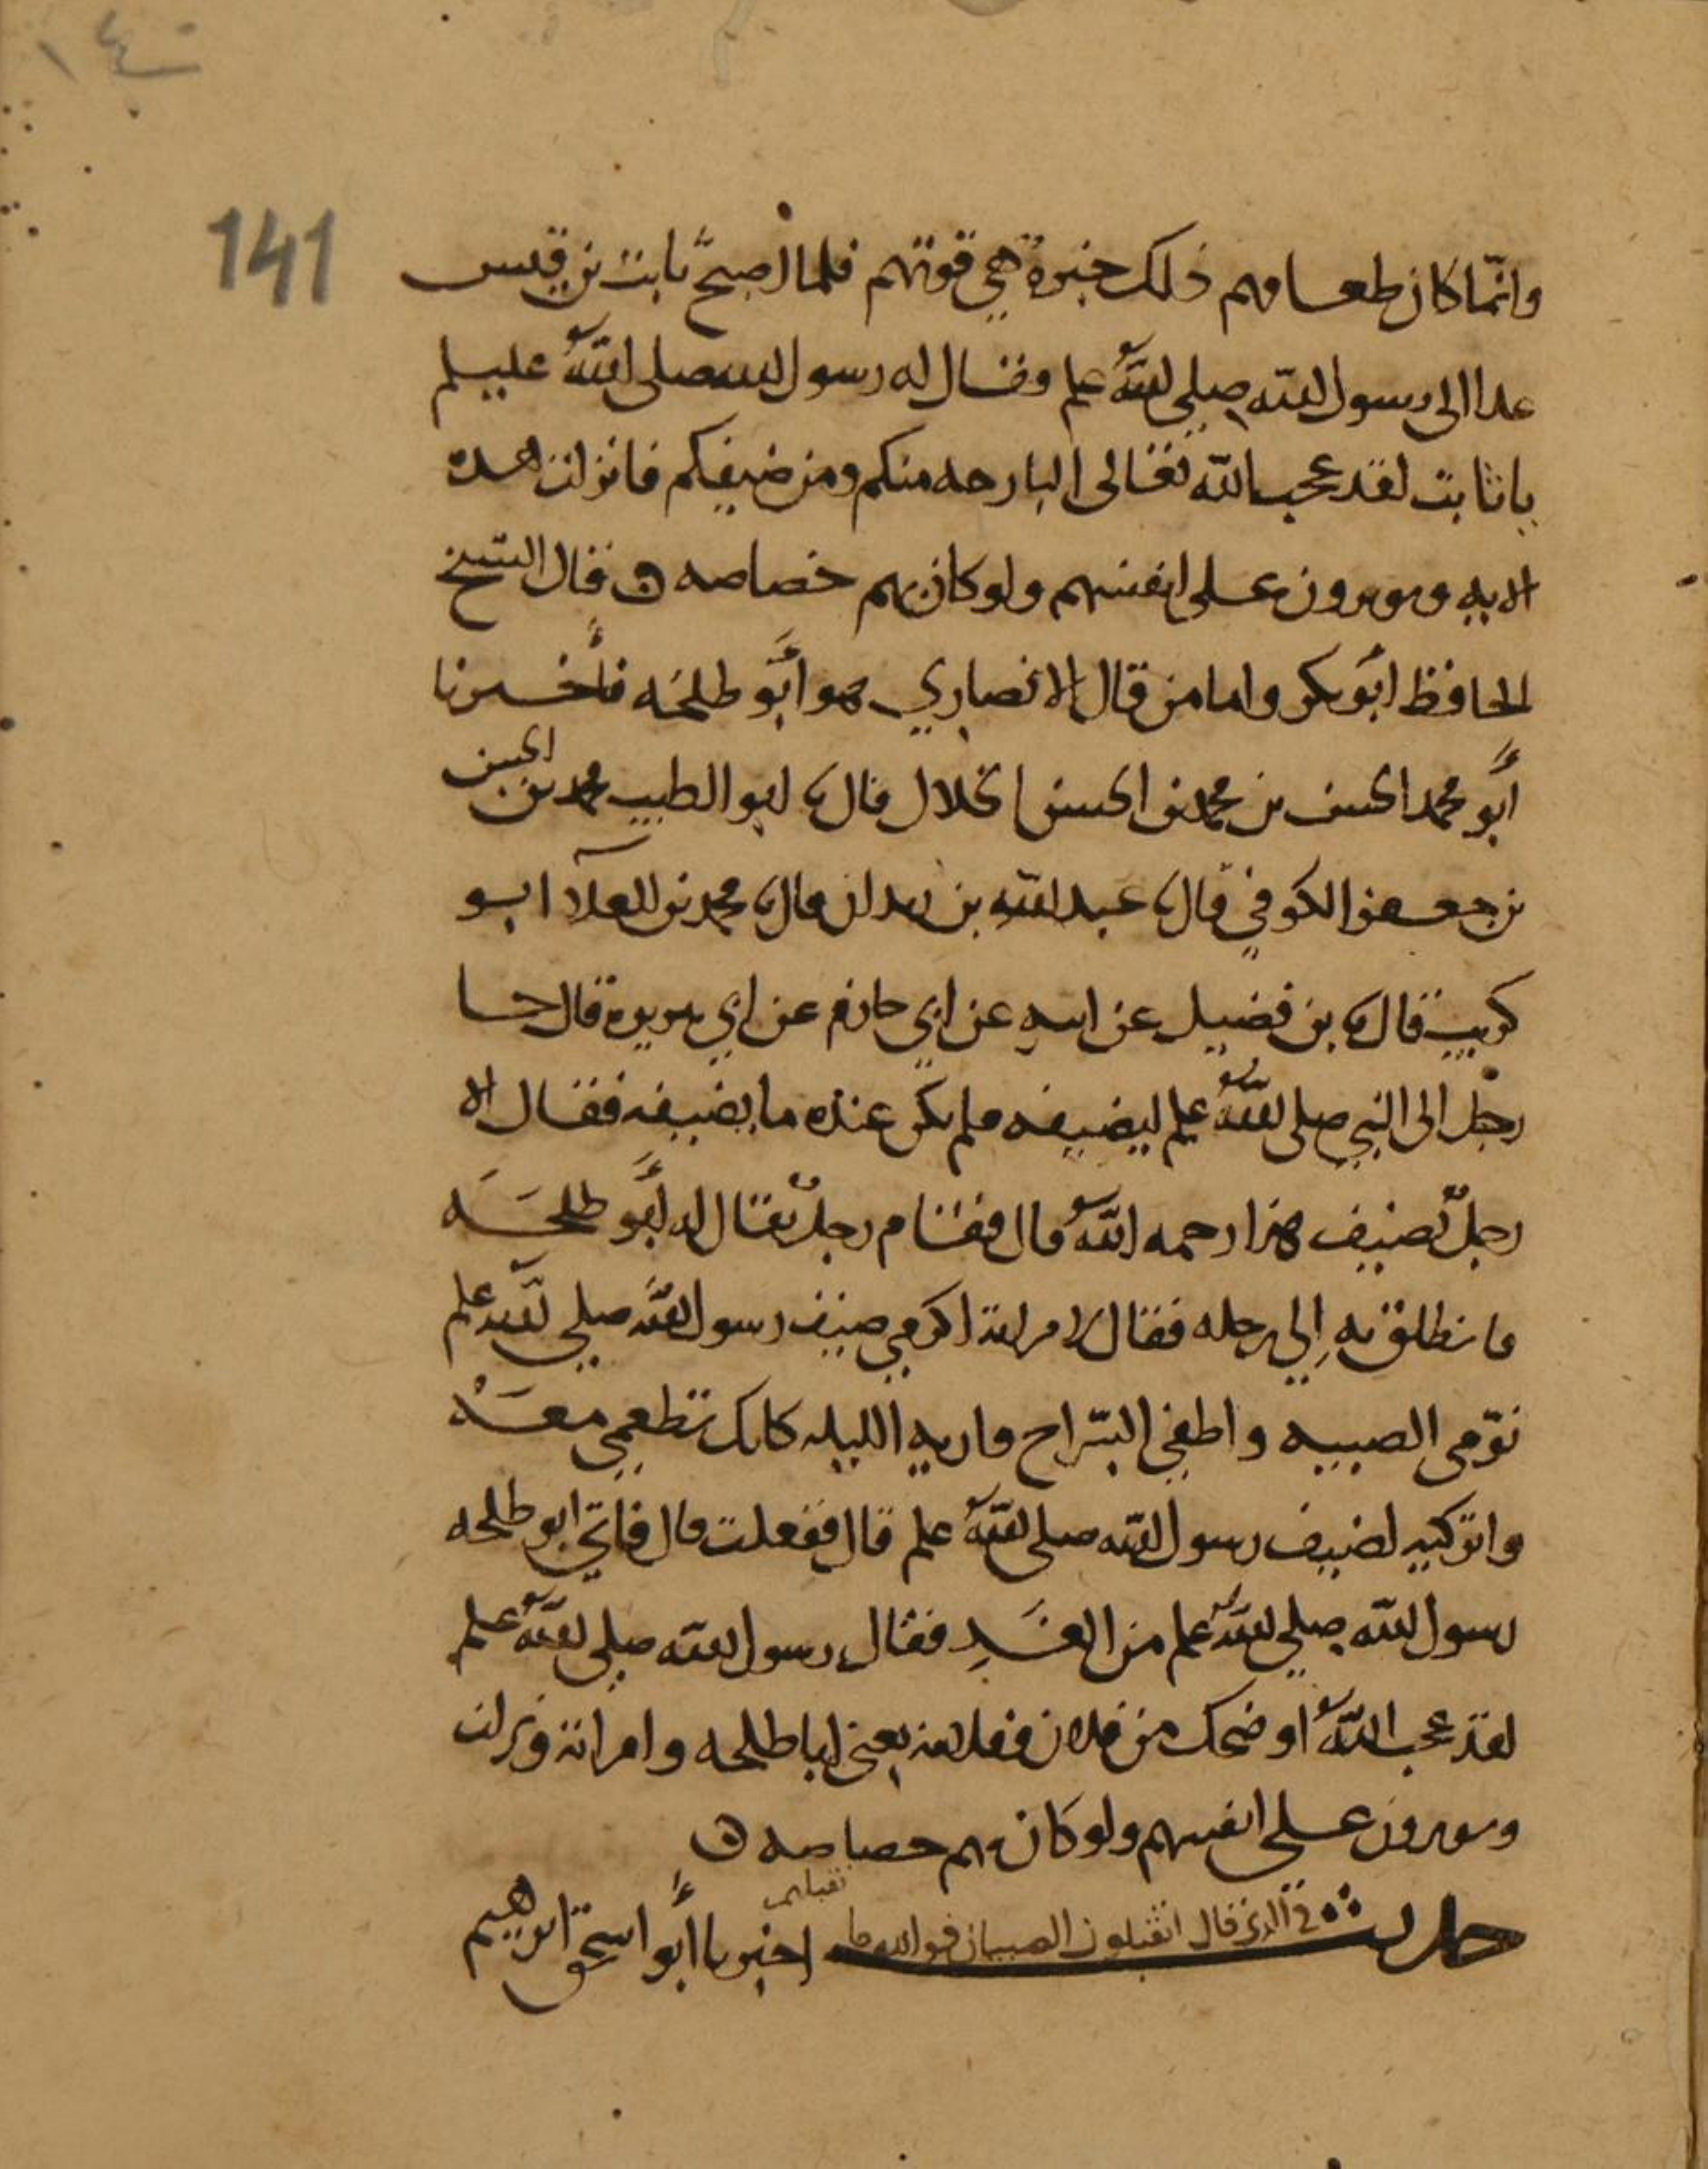 ١٤٠
141
وانّما كان طعامهم ذلك خبزة هي قوتهم فلما اصبح ثابت بن قيس
غدا الى رسول الله صلى الله علم وقال له رسول الله صلى الله عليسلم
يا ثابت لقد عجب الله تعالى البارحه منكم ومن ضيفكم فانزلت هذه
الايه ويوثرون على انفسهم ولو كان بهم خصاصه ۞ قال الشيخ
الحافظ ابو بكر واما من قال الانصاري هو أبو طلحه فأخبرنا
أبو محمد الحسن بن محمد بن الحسن الخلال قال ثنا ابو الطيب محمد بن الحسين
بن جعفر الكوفي قال ثنا عبد الله بن زيدان قال ثنا محمد بن العلآ ابو
كريب قال ثنا بن فضيل عن ابيه عن ابي حازم عن ابي هريرة قال جا
رجل الى النبي صلى الله علم ليضيفه فلم يكن عنده ما يضيفه فقال الا
رجلٌ يضيف هذا رحمه الله قال فقام رجلٌ يقال له أبو طلحَه
فانطلق به إلى رحله فقال لامراته اكرمي ضيف رسول الله صلى الله علم
نوّمي الصبيه واطفي السّراج واريه الليله كانك تطعمي معَهْ
واتركيه لضيف رسول الله صلى الله علم قال ففعلت قال فاتى ابو طلحه
رسول الله صلى الله علم من الغَدِ فقال رسول الله صلى الله علم
لقد عجب الله او ضحك من فلان وفلانه يعني ابا طلحه وامراته ونزلت
ويوثرون على انفسهم ولو كان بهم خصاصه ۞
حديث في الذي قال اتقبلون الصبيان فوالله ما نقبلهم اخبرنا أبو اسحق ابرهيم